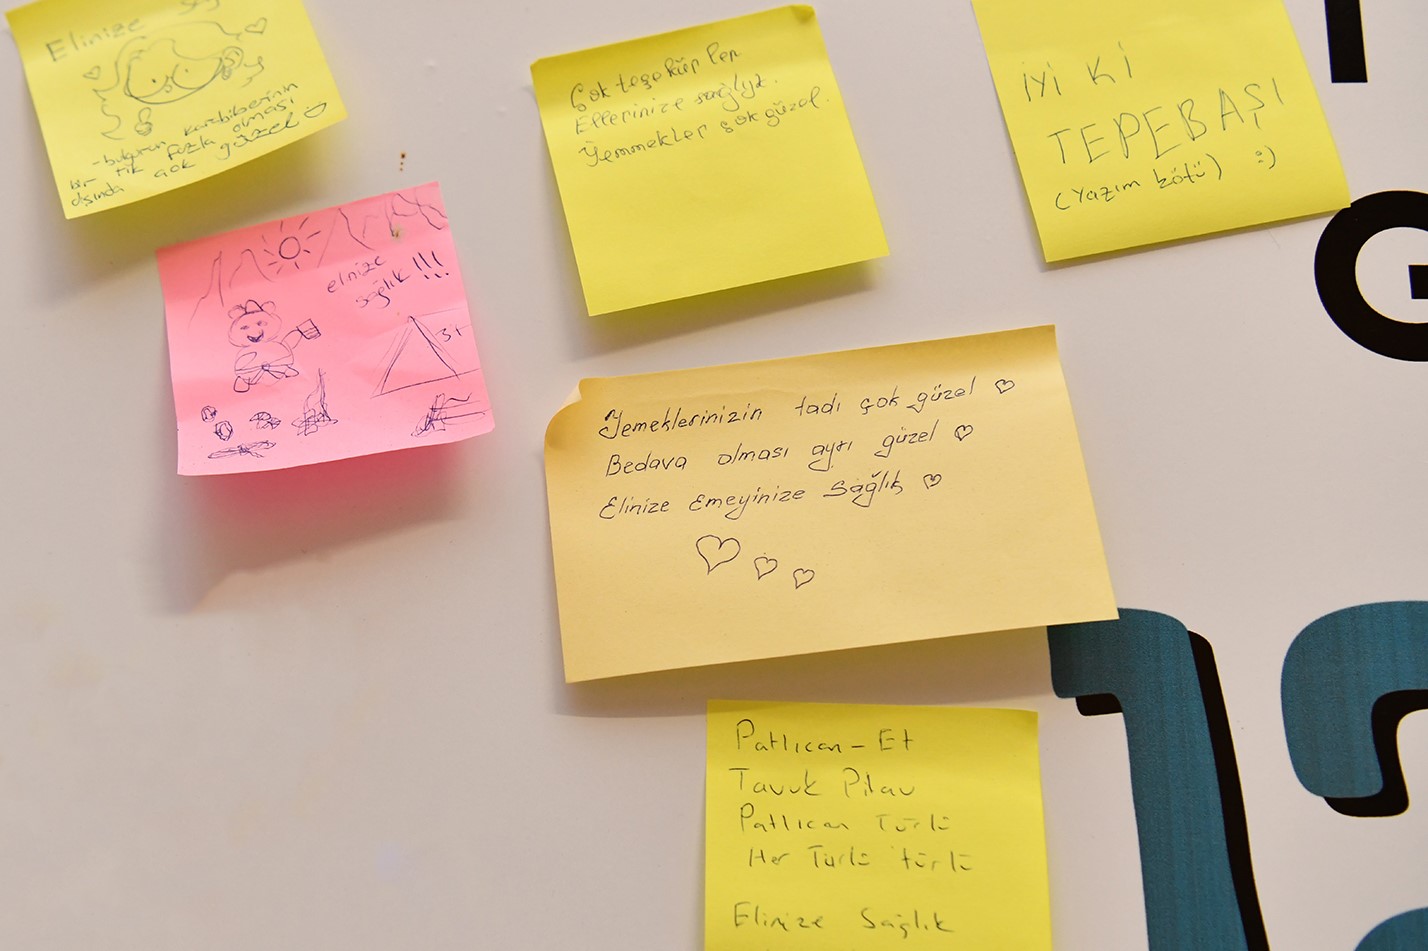 Elinize Sağ
-bulgurun karabiberinin
bir tık fazla olması
dışında çok güzel
elnize
sağlık !!!
Çok teşekürler
Ellerinize sağlık.
Yemmekler çok güzel.
İYİ Kİ
TEPEBAŞI
(Yazım kötü) :)
Yemeklerinizin tadı çok güzel ♡
Bedava olması ayrı güzel ♡
Elinize Emeyinize Sağlık ♡
Patlıcan - Et
Tavuk Pilav
Patlıcan Türlü
Her Türlü türlü
Elinize Sağlık
G
12